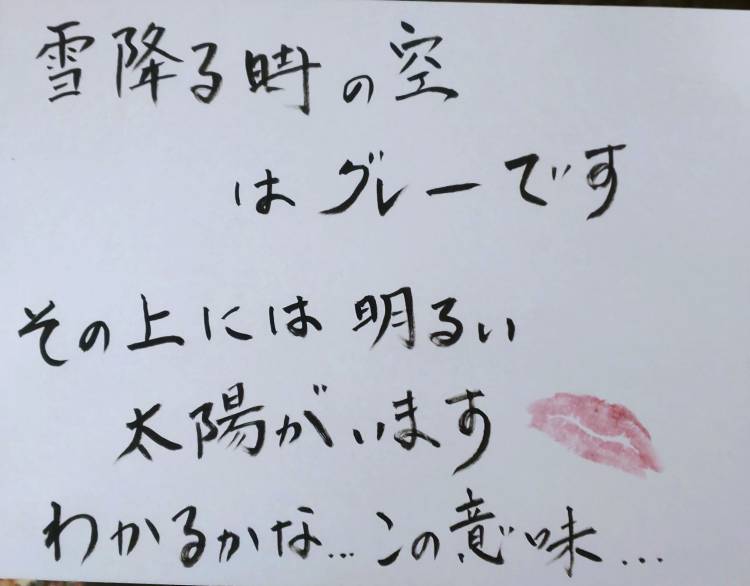 雪降る時の空
はグレーです
その上には明るい
太陽がいます
わかるかな...この意味...